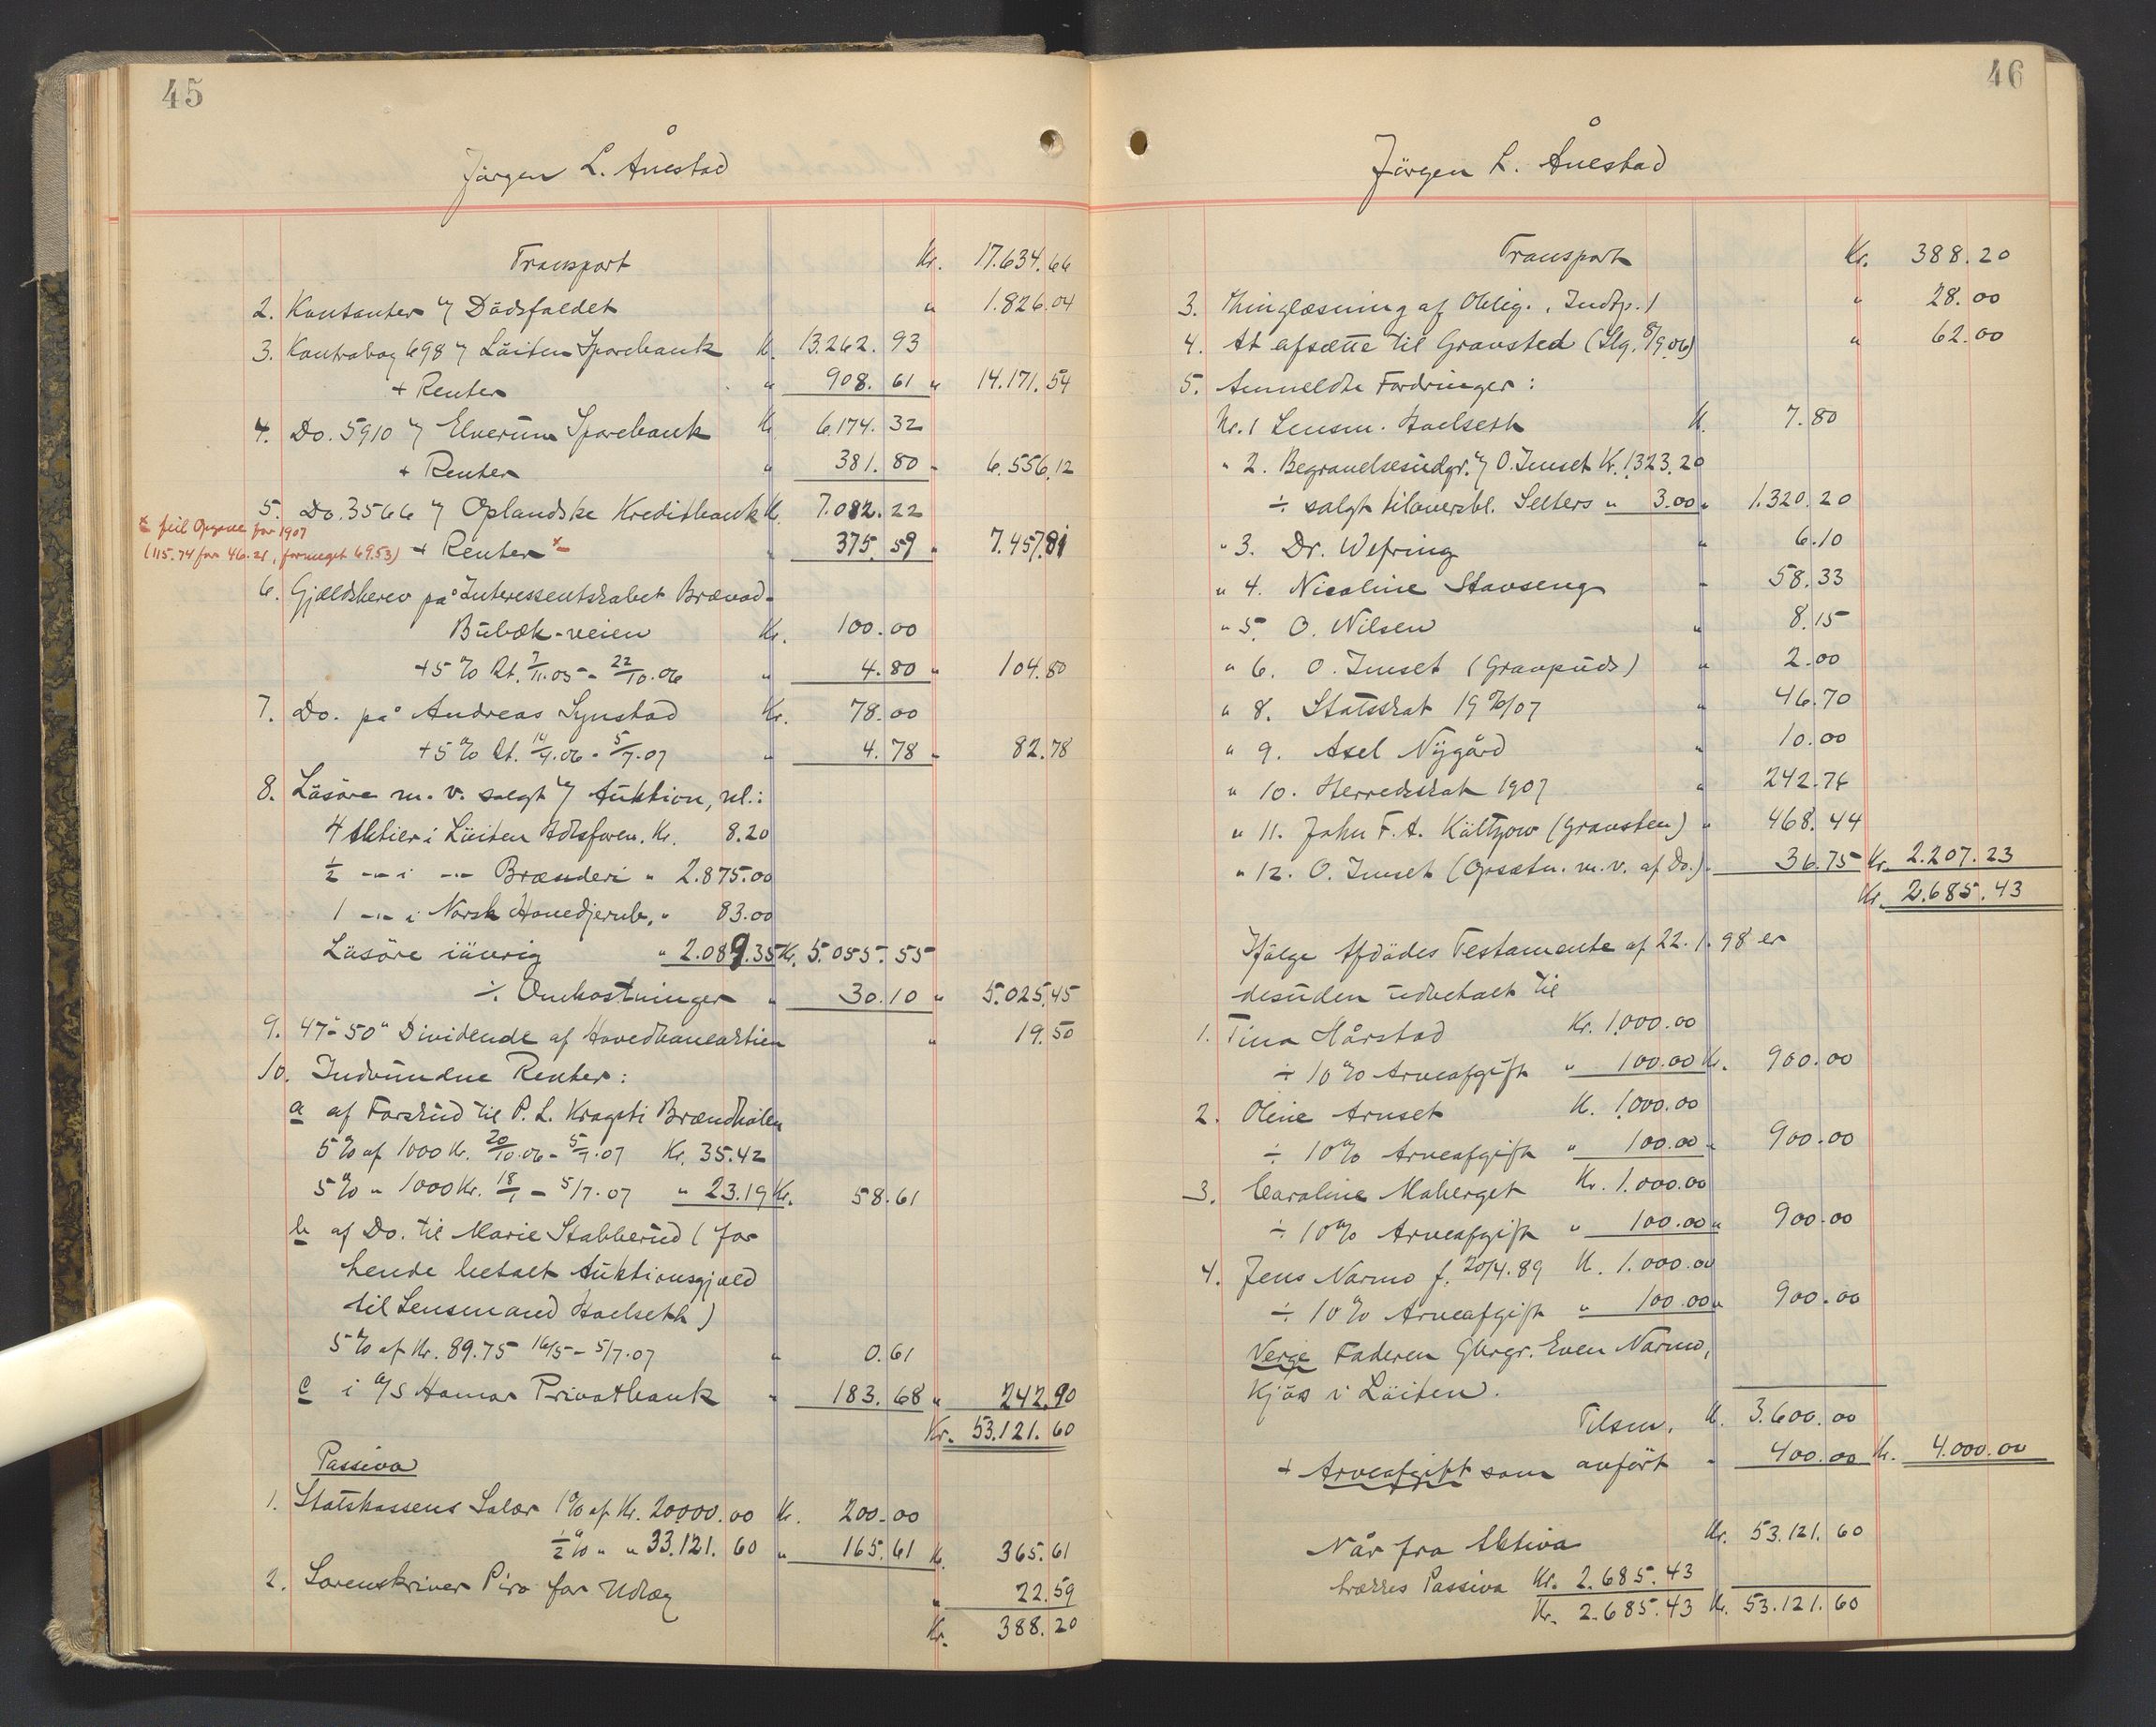 45
Jörgen L. Ånestad
Transport Kr. 17.634.66
2. Kontanter v/ Dödsfaldet " 1.826.04
3. Kontrabog 698 v/ Löiten Sparebank Kr. 13.262.93
+ Renter " 908.61 " 14.171.54
4. Do. 5910 v/ Elverum Sparebank Kr. 6.174.32
+ Renter " 381.80 " 6.556.12
5. Do. 3566 v/ Oplandske Kreditbank Kr. 7.082.22
x feil Opgave for 1907
(115.74 for 46.21, formeget 69.53) + Renter x " 375.59 " 7.457.81
6. Gjældsbrev på Interessentskabet Brævad-
Bubæk-veien Kr. 100.00
+ 5 % Rt. 7/11.05 - 22/10.06 " 4.80 " 104.80
7. Do. på Andreas Synstad Kr. 78.00
+ 5 % Rt. 14/4.06 - 5/7.07 " 4.78 " 82.78
8. Lösöre m.v. solgt v/ Auktion, nl.:
4 Aktier i Löiten Adsforen. Kr. 8.20
1/2 -"- i -"- Brænderi " 2.875.00
1 -"- i Norsk Hovedjernb. " 83.00
Lösöre iövrig " 2.089.35 Kr. 5.055.55
÷ Omkostninger " 30.10 " 5.025.45
9. 47" - 50" Dividende af Hovedbaneaktien " 19.50
10. Indvundne Renter:
a af Forskud til P. L. Kragsti Brændholen
5 % af 1000 Kr. 20/10.06 - 5/7.07 Kr. 35.42
5 % " 1000 Kr. 18/1 - 5/7.07 " 23.19 Kr. 58.61
b af Do. til Marie Stabberud (for
hende betalt Auktionsgjæld
til Lensmand Hoelseth)
5 % af Kr. 89.75 16/5 - 5/7.07 " 0.61
c i A/S Hamar Privatbank " 183.68 " 242.90
Kr. 53.121.60
Passiva
1. Statskassens Salær 1 % af Kr. 20.000.00 Kr. 200.00
1/2 % " " 33.121.60 " 165.61 Kr. 365.61
2. Sorenskriver Piro for Udlæg " 22.59
Kr. 388.20
46
Jörgen L. Ånestad
Transport Kr. 388.20
3. Thinglæsning af Oblig., Indtp. 1 " 28.00
4. At afsætte til Gravsted (Slg. 8/9.06) " 62.00
5. Anmeldte Fordringer:
Nr. 1 Lensm. Hoelseth Kr. 7.80
" 2. Begravelsesudgr. v/ O. Imset Kr. 1.323.20
÷ solgt tiloversbl. Selters " 3.00 " 1.320.20
" 3. Dr. Wefring " 6.10
" 4. Nicoline Stavseng " 58.33
" 5. O. Nilsen " 8.15
" 6. O. Imset (Gravpuds) " 2.00
" 8. Statsskat 1906/07 " 46.70
" 9. Axel Nygård " 10.00
" 10. Herredsskat 1907 " 242.76
" 11. John F. A. Kültzow (Gravsten) " 468.44
" 12. O. Imset (Opsætn. m.v. af Do.) " 36.75 Kr. 2.207.23
Kr. 2.685.43
Ifölge Afdödes Testamente af 22.1.98 er
desuden udbetalt til
1. Tina Hårstad Kr. 1.000.00
÷ 10 % Arveafgift " 100.00 Kr. 900.00
2. Oline Arnset Kr. 1.000.00
÷ 10 % Arveafgift " 100.00 " 900.00
3. Caroline Moberget Kr. 1.000.00
÷ 10 % Arveafgift " 100.00 " 900.00
4. Jens Narmo f. 20/4.89 Kr. 1.000.00
÷ 10 % Arveafgift " 100.00 " 900.00
Verge Faderen Gbrgr. Even Narmo,
Kjös i Löiten.
Tilsm. Kr. 3.600.00
+ Arveafgift som anfört " 400.00 Kr. 4.000.00
Når fra Aktiva Kr. 53.121.60
trækkes Passiva Kr. 2.685.43
Kr. 2.685.43 Kr. 53.121.60